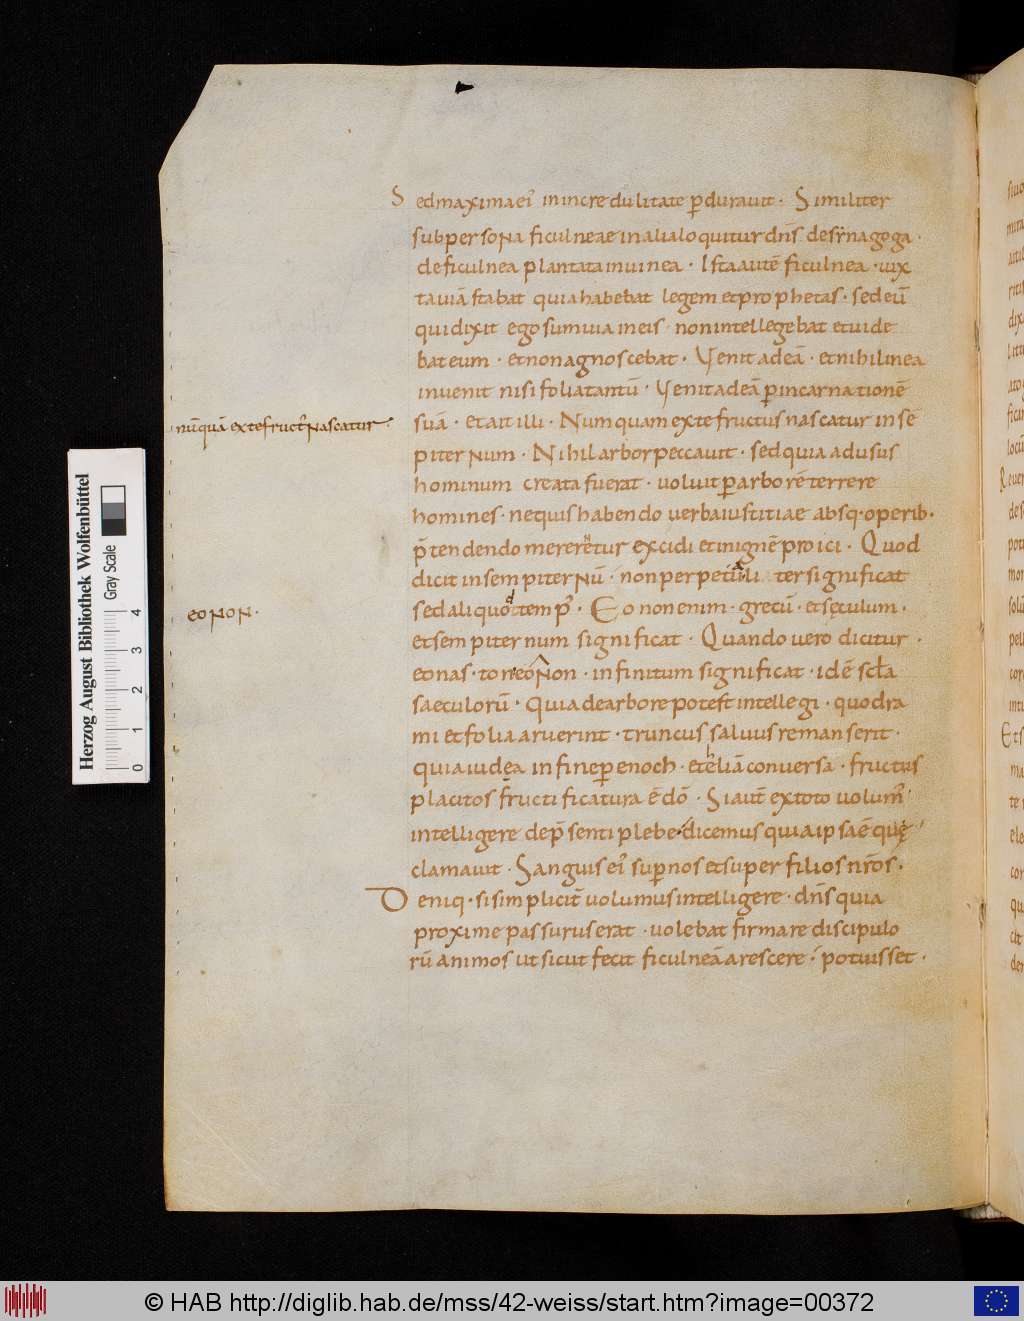 Sed maxima ei' in incredulitate ꝑdurauit · Similiter
sub persona ficulneae in alia loquitur dn̄s de synagoga ·
de ficulnea plantata in uinea · Ista autē ficulnea · iux
ta uiā stabat quia habebat legem et prophetas · sed eū
qui dixit ego sum uia in eis · non intellegebat et uide
bat eum · et non agnoscebat · Uenit ad eā · et nihil in ea
inuenit nisi folia tantū · Uenit ad eā ꝑ incarnationē
nūquā ex te fruct' nascatur ·
suā · et ait illi · Numquam ex te fructus nascatur in sē
piternum · Nihil arbor peccauit · sed quia ad usus
hominum creata fuerat · uoluit ꝑ arborē terrere
homines · ne quis habendo uerba iustitiae absq · operib ·
p̄tendendo mereretur excidi et in ignē proici · Quod
dicit in sempiternū · non perpetuali ter significat
eonon ·
sed aliquod temp' · Eo non enim · grecū · et sęculum ·
et sempiternum significat · Quando uero dicitur ·
eonas · ton eonon · infinitum significat · id ē scła
saeculorū · Quia de arbore potest intellegi · quod ra
mi et folia aruerint · truncus saluus remanserit ·
quia iudęa in fine ꝑ enoch · et heliā conuersa · fructus
placitos fructificatura ē dō · Si aut̄ ex toto volum'
intelligere de p̄senti plebe · dicemus quia ipsa ē quę
clamauit · Sanguis ei' sup nos et super filios nr̄os ·
Deniq · si simplicit̄ uolumus intelligere · dn̄s quia
proxime passurus erat · uolebat firmare discipulo
rū animos ut sicut fecit ficulneā arescere · potuisset ·
Herzog August Bibliothek Wolfenbüttel
Gray Scale
0 1 2 3 4
© HAB http://diglib.hab.de/mss/42-weiss/start.htm?image=00372